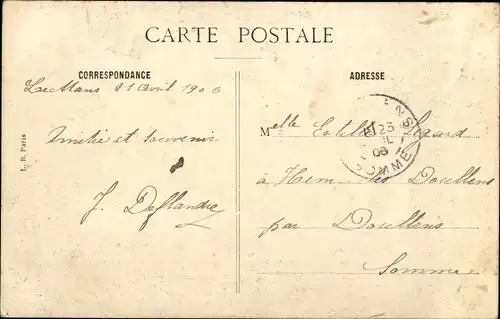 CARTE POSTALE
CORRESPONDANCE
Le Mans 21 Avril 1906
Amitié et souvenir
J. Deflandre
L. B. Paris
ADRESSE
Melle Estelle Ligard
à Hem les Doullens
par Doullens
Somme
23
06
SOMME